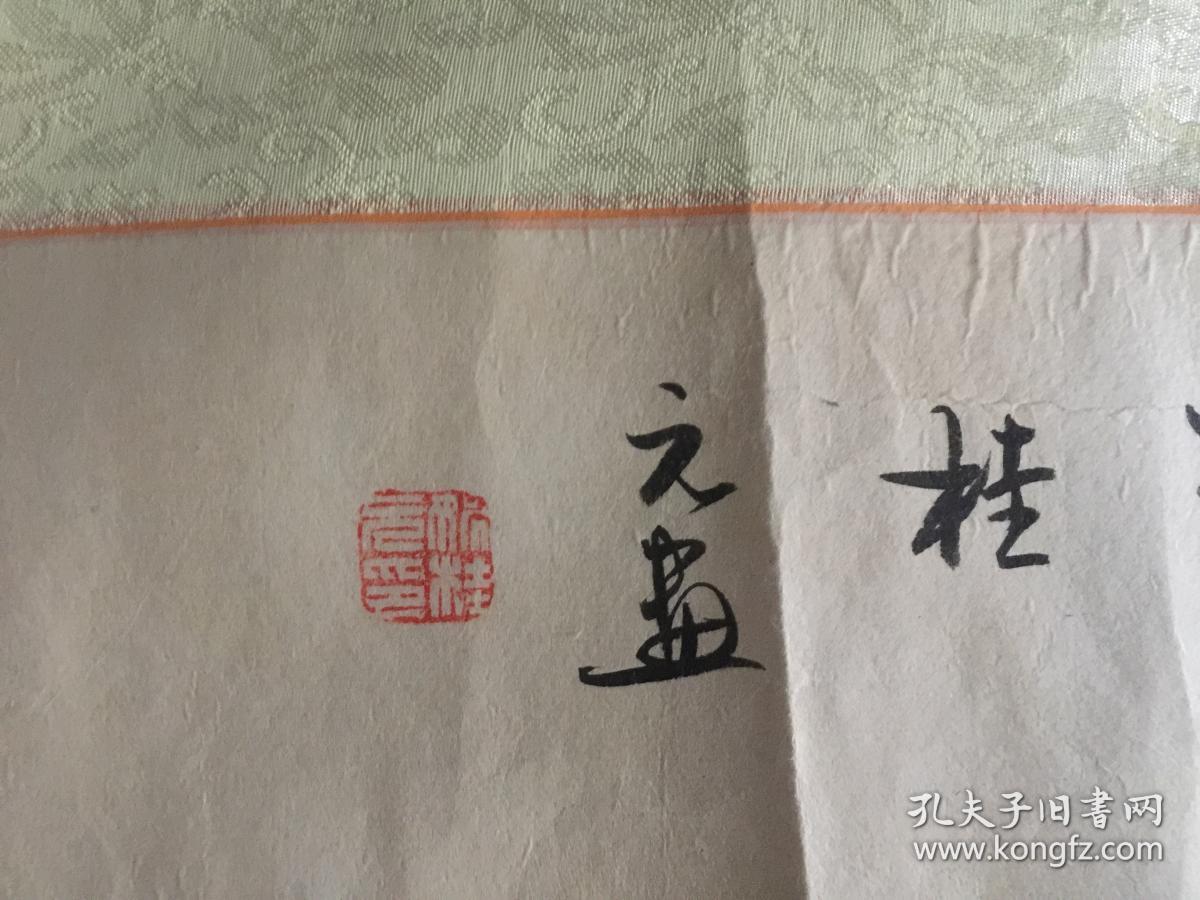 桂
元畫
孔夫子旧書网
www.kongfz.com